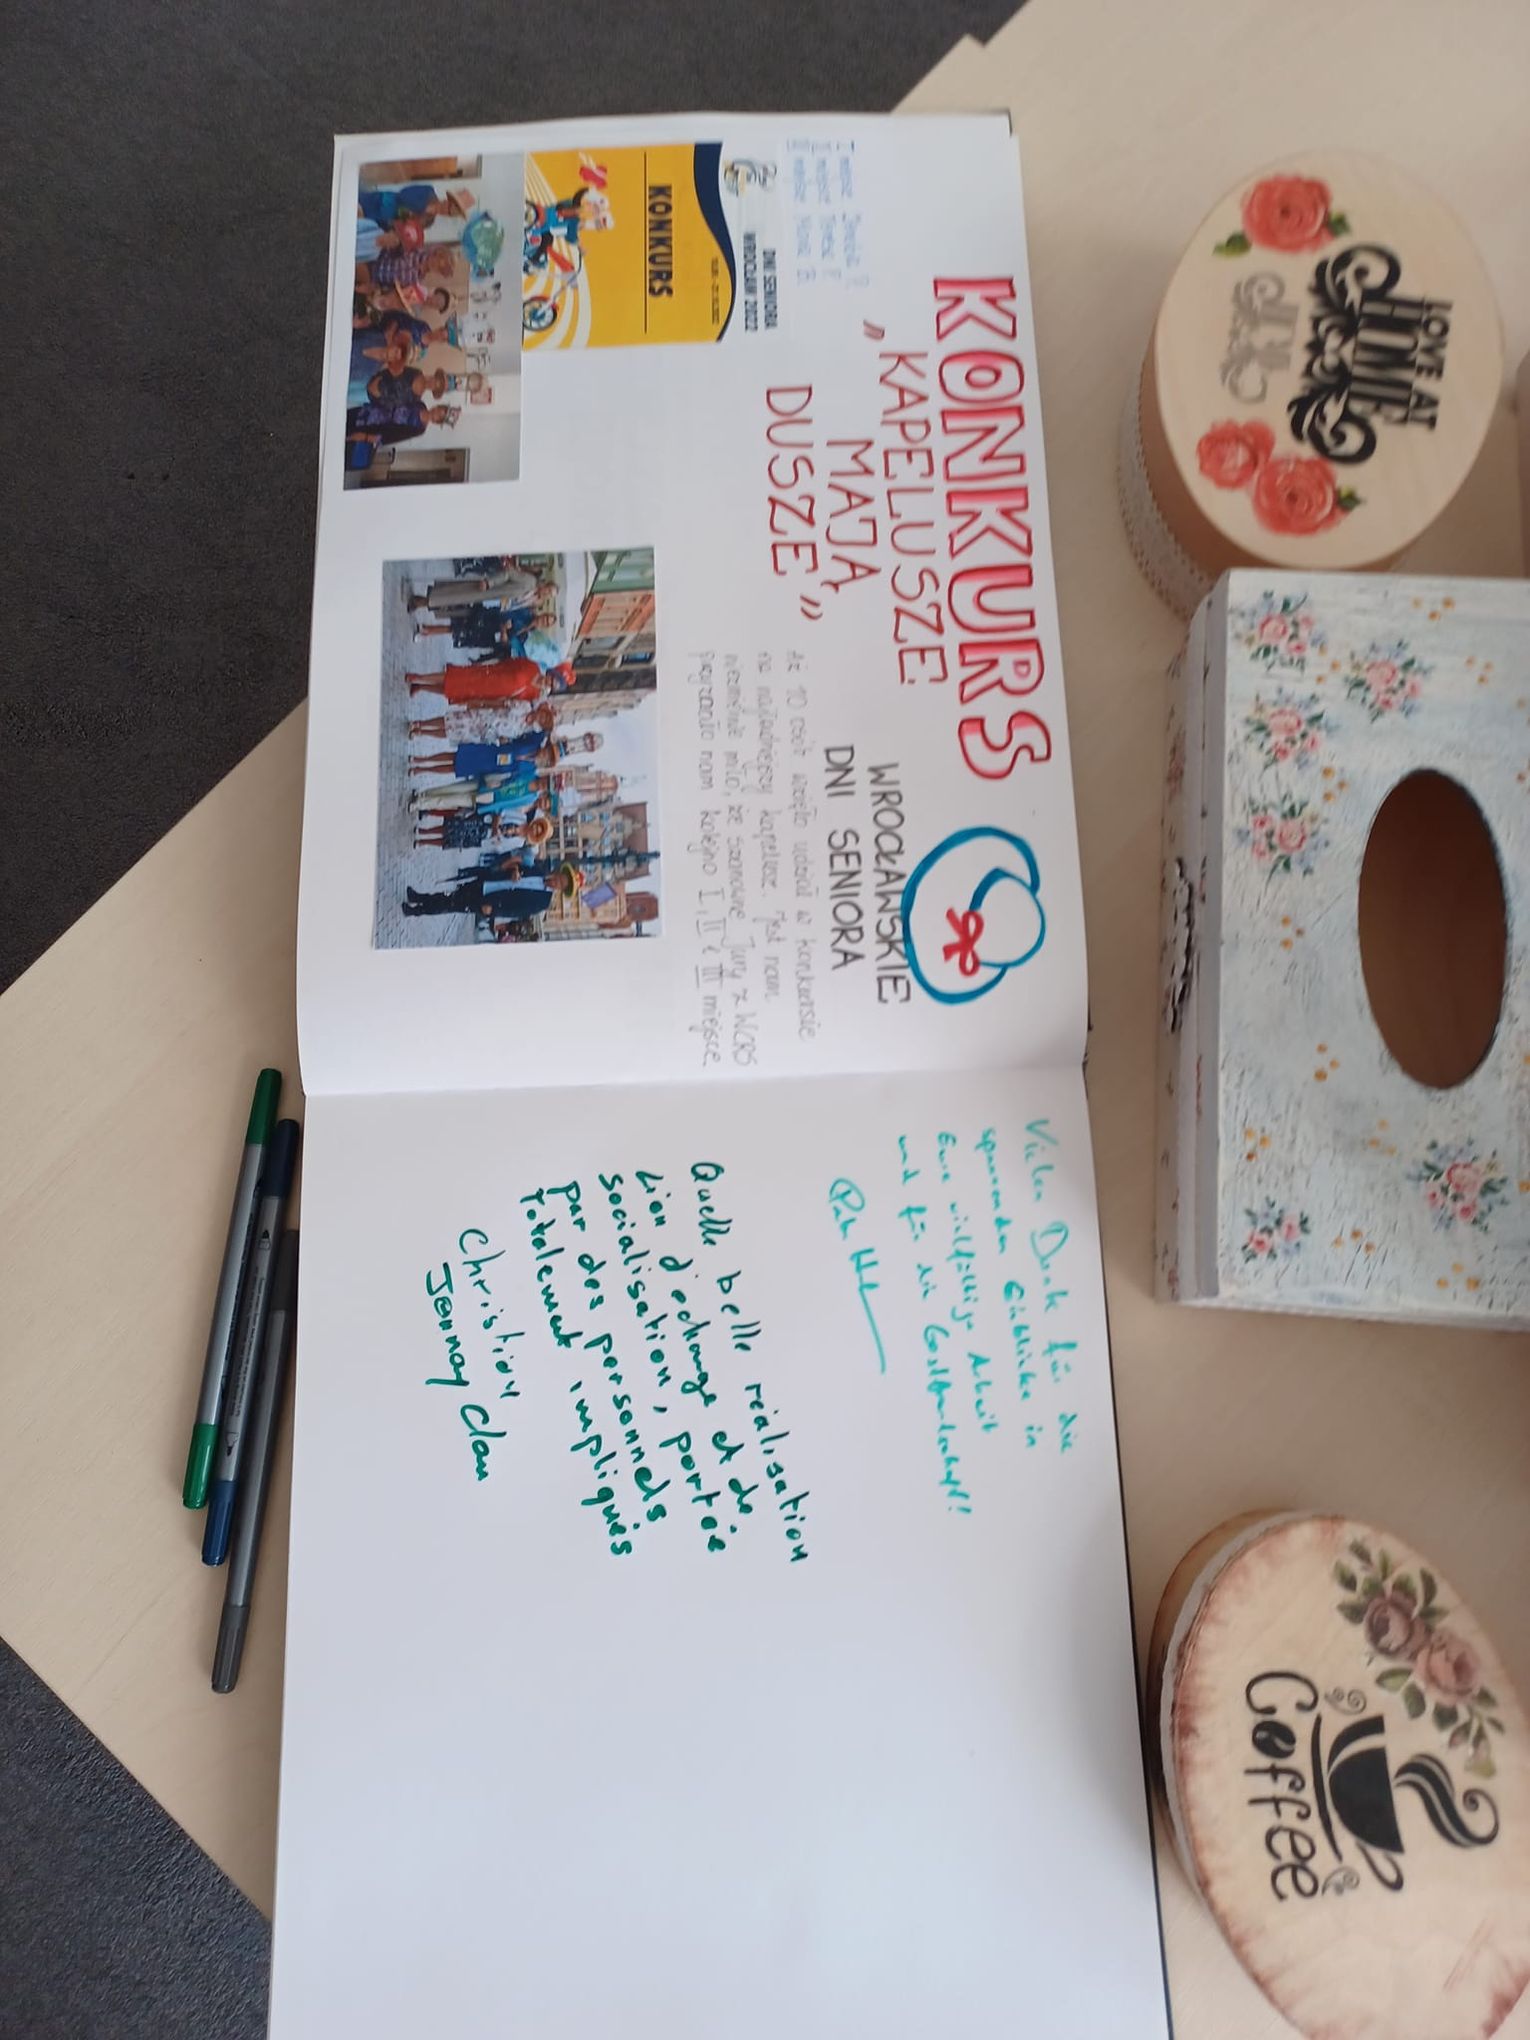 KONKURS
„KAPELUSZE
MAJĄ
DUSZE”
WROCŁAWSKIE
DNI SENIORA
I miejsce
II miejsce Teresa
III miejsce Maria B.
DNI SENIORA
WROCŁAW 2022
KONKURS
Aż 10 osób wzięło udział w konkursie
na najładniejszy kapelusz. Jest nam
niezmiernie miło, że szanowne Jury z WCRS
przyznało nam kolejno I, II i III miejsce.
Vielen Dank für die
spannenden Einblicke in
Eure vielfältige Arbeit
und für die Gastfreundschaft!
Quelle belle réalisation
Lien d'échange et de
socialisation, portée
par des personnels
totalement impliqués
Christian
LOVE AT
HOME
Coffee